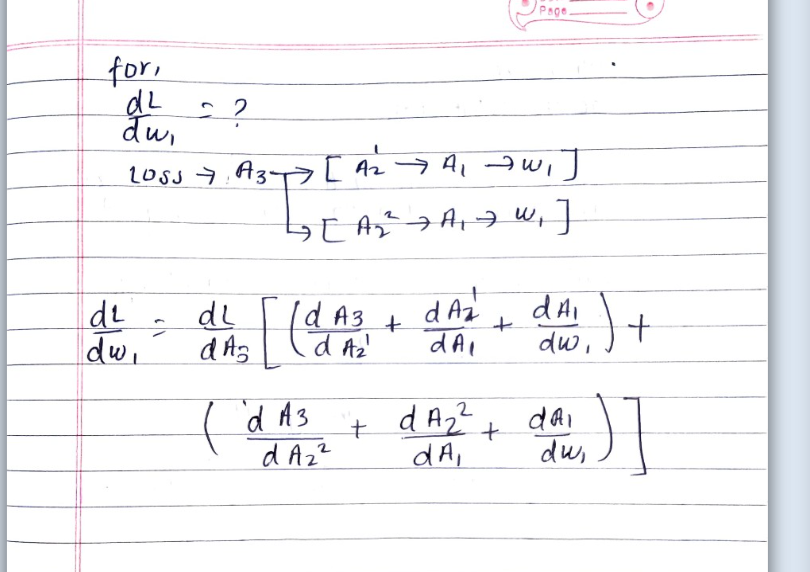 Page
for,
dL/dw₁ = ?
Loss → A₃ → [ A₂¹ → A₁ → w₁ ]
↳ [ A₂² → A₁ → w₁ ]
dL/dw₁ = dL/dA₃ [ ( dA₃/dA₂¹ + dA₂¹/dA₁ + dA₁/dw₁ ) +
( dA₃/dA₂² + dA₂²/dA₁ + dA₁/dw₁ ) ]